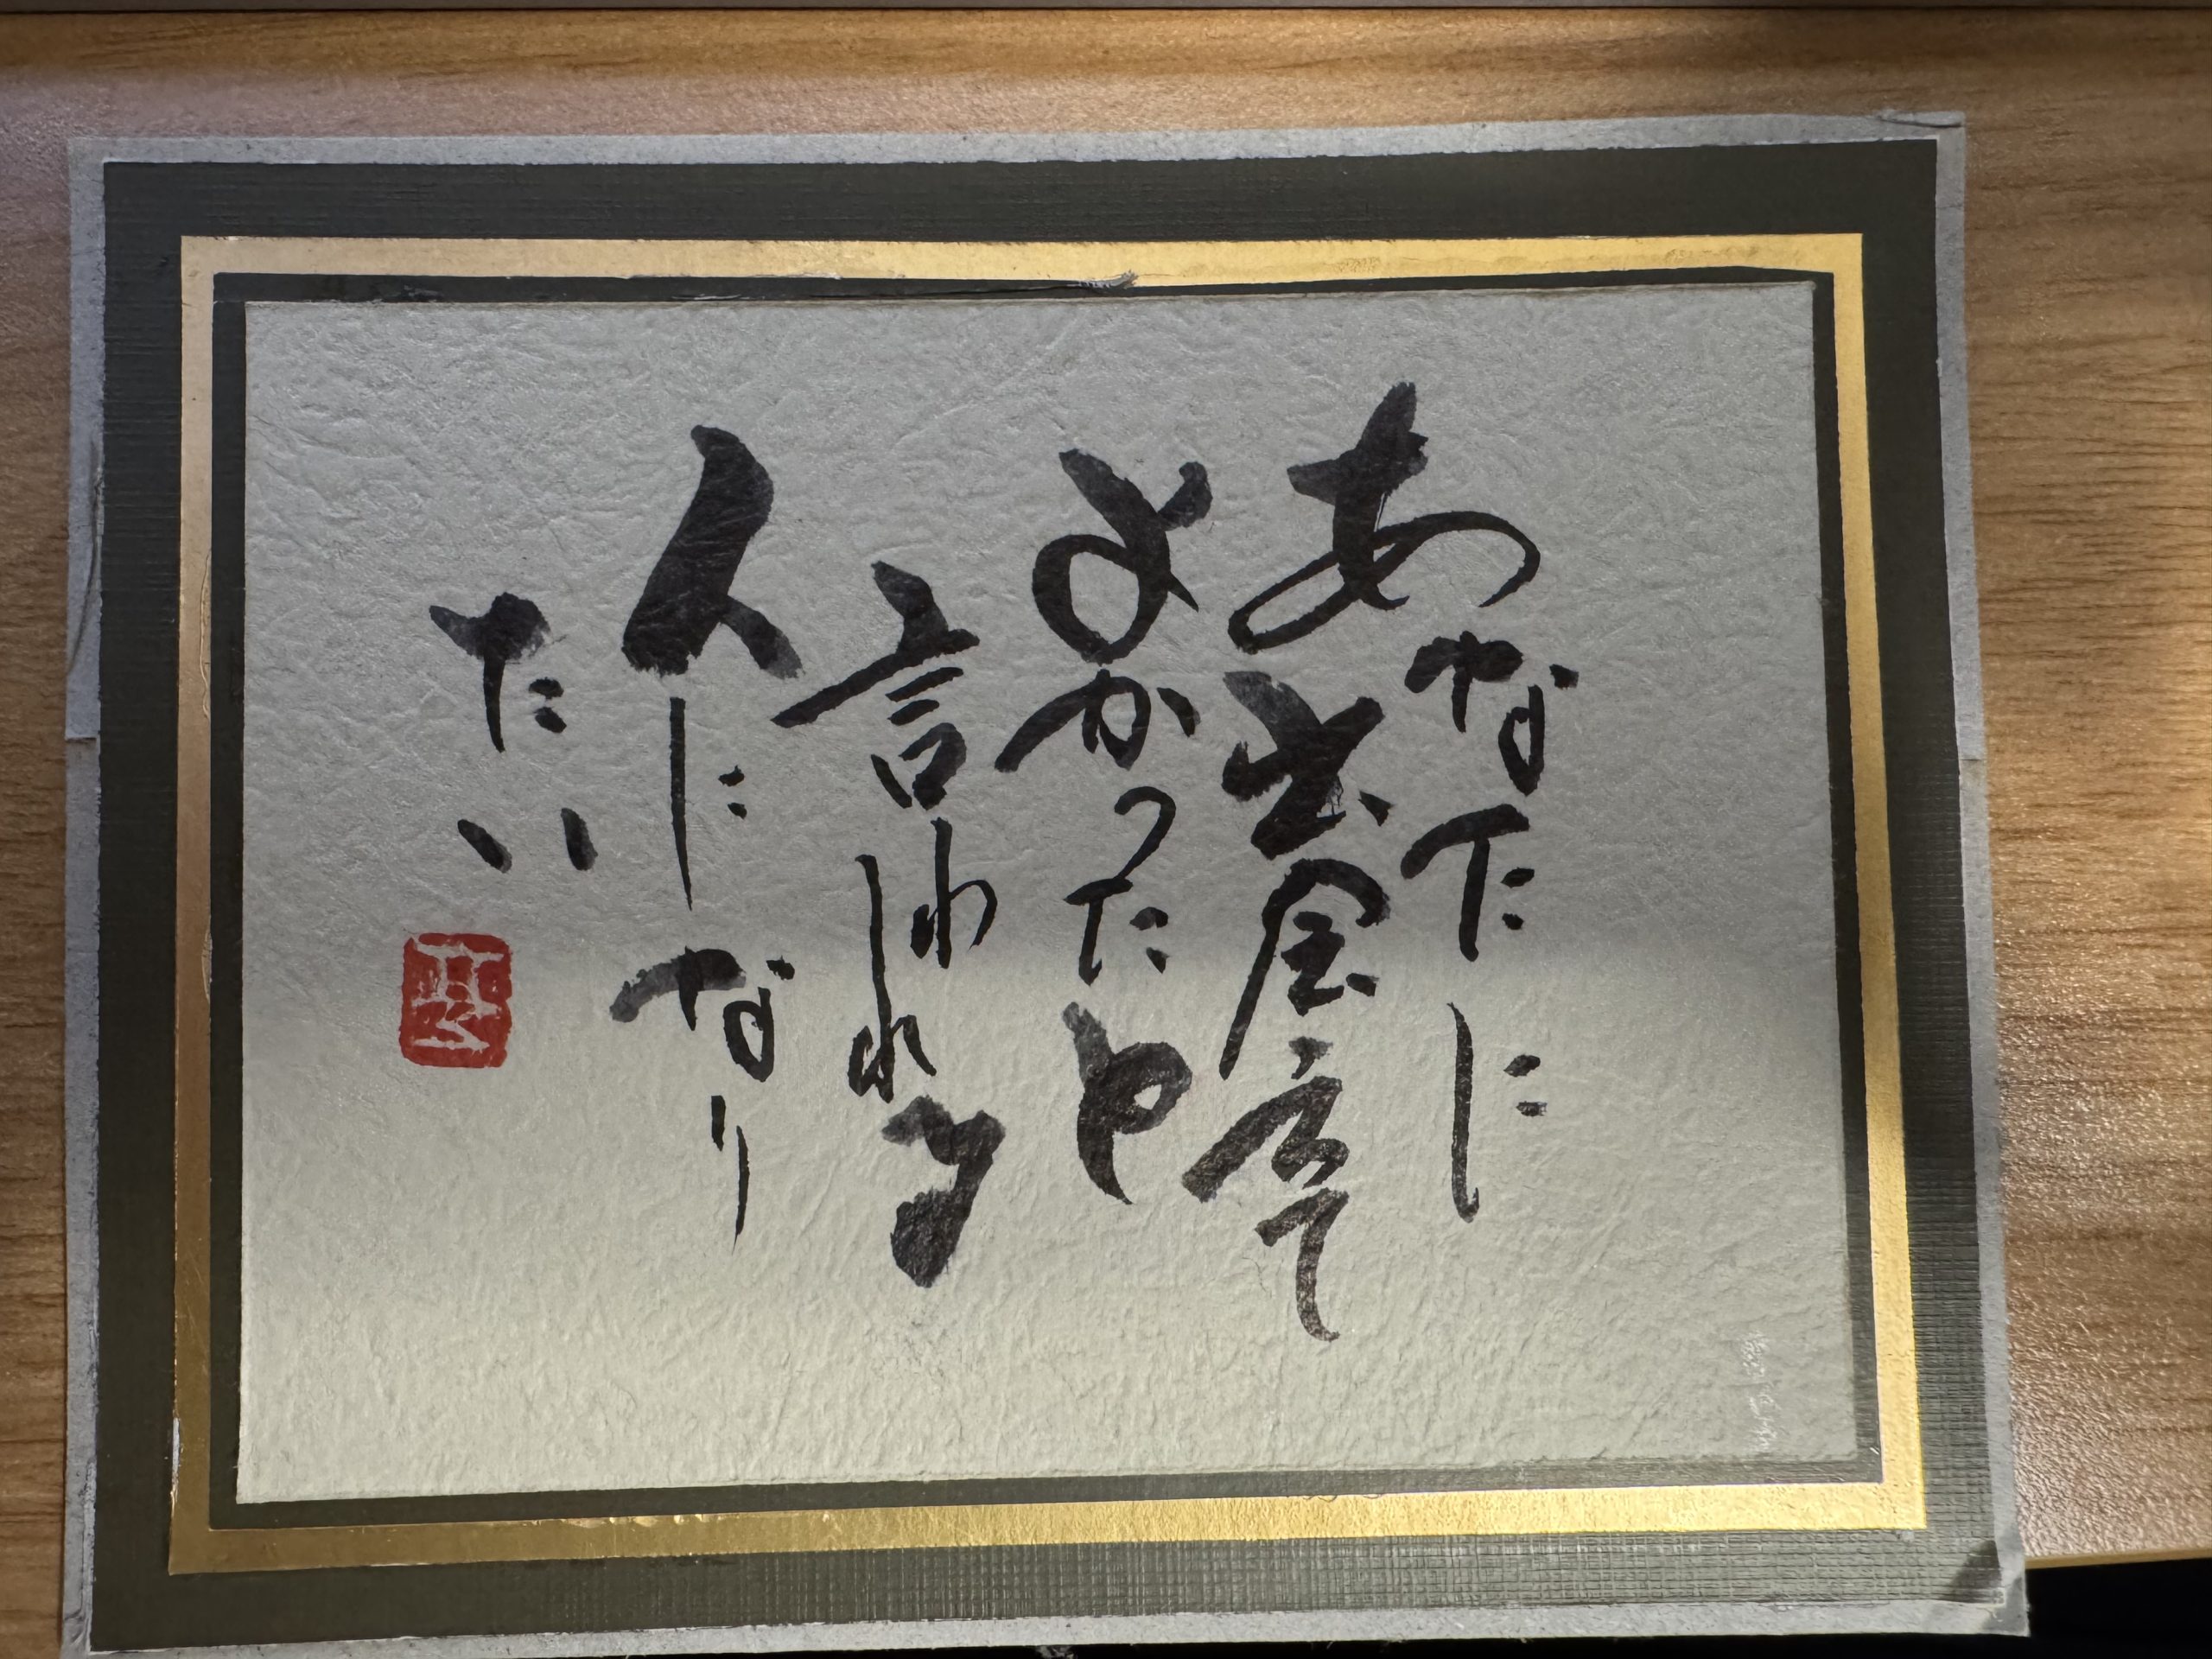 あなたに
出会えて
よかったと
言われる
人になり
たい